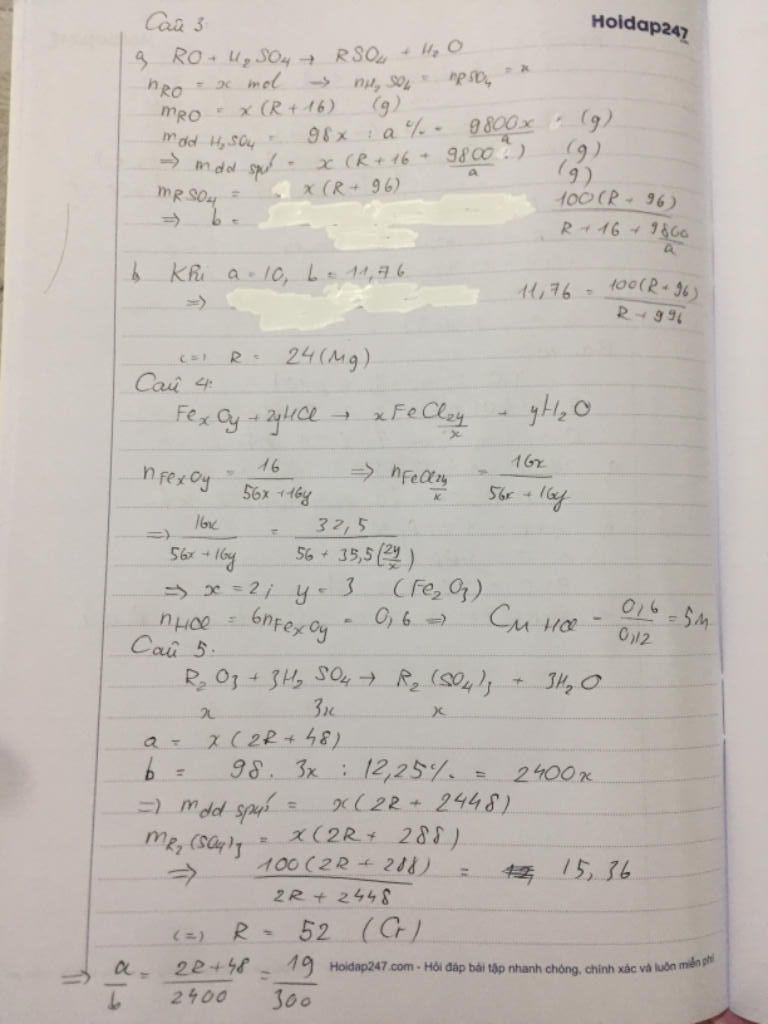 Hoidap247
Câu 3
a, RO + H₂SO₄ → RSO₄ + H₂O
nRO = x mol → nH₂SO₄ = nRSO₄ = x
mRO = x(R+16) (g)
mdd H₂SO₄ = 98x : a% = 9800x/a (g)
⇒ mdd spứ = x(R+16 + 9800/a) (g)
mRSO₄ = x(R+96) (g)
⇒ b = 100(R+96)/(R+16+9800/a)
b, Khi a=10, b=11,76
⇒ 11,76 = 100(R+96)/(R+996)
(=) R = 24(Mg)
Câu 4:
FexOy + 2yHCl → xFeCl2y/x + yH₂O
nFexOy = 16/(56x+16y) ⇒ nFeCl2y/x = 16x/(56x+16y)
⇒ 16x/(56x+16y) = 32,5/(56+35,5(2y/x))
⇒ x = 2; y = 3 (Fe₂O₃)
nHCl = 6nFexOy = 0,6 ⇒ CM HCl = 0,6/0,12 = 5M
Câu 5:
R₂O₃ + 3H₂SO₄ → R₂(SO₄)₃ + 3H₂O
x 3x x
a = x(2R+48)
b = 98.3x : 12,25% = 2400x
⇒ mdd spứ = x(2R+2448)
mR₂(SO₄)₃ = x(2R+288)
⇒ 100(2R+288)/(2R+2448) = 15,36
(=) R = 52 (Cr)
⇒ a/b = (2R+48)/2400 = 19/300
Hoidap247.com - Hỏi đáp bài tập nhanh chóng, chính xác và luôn miễn phí